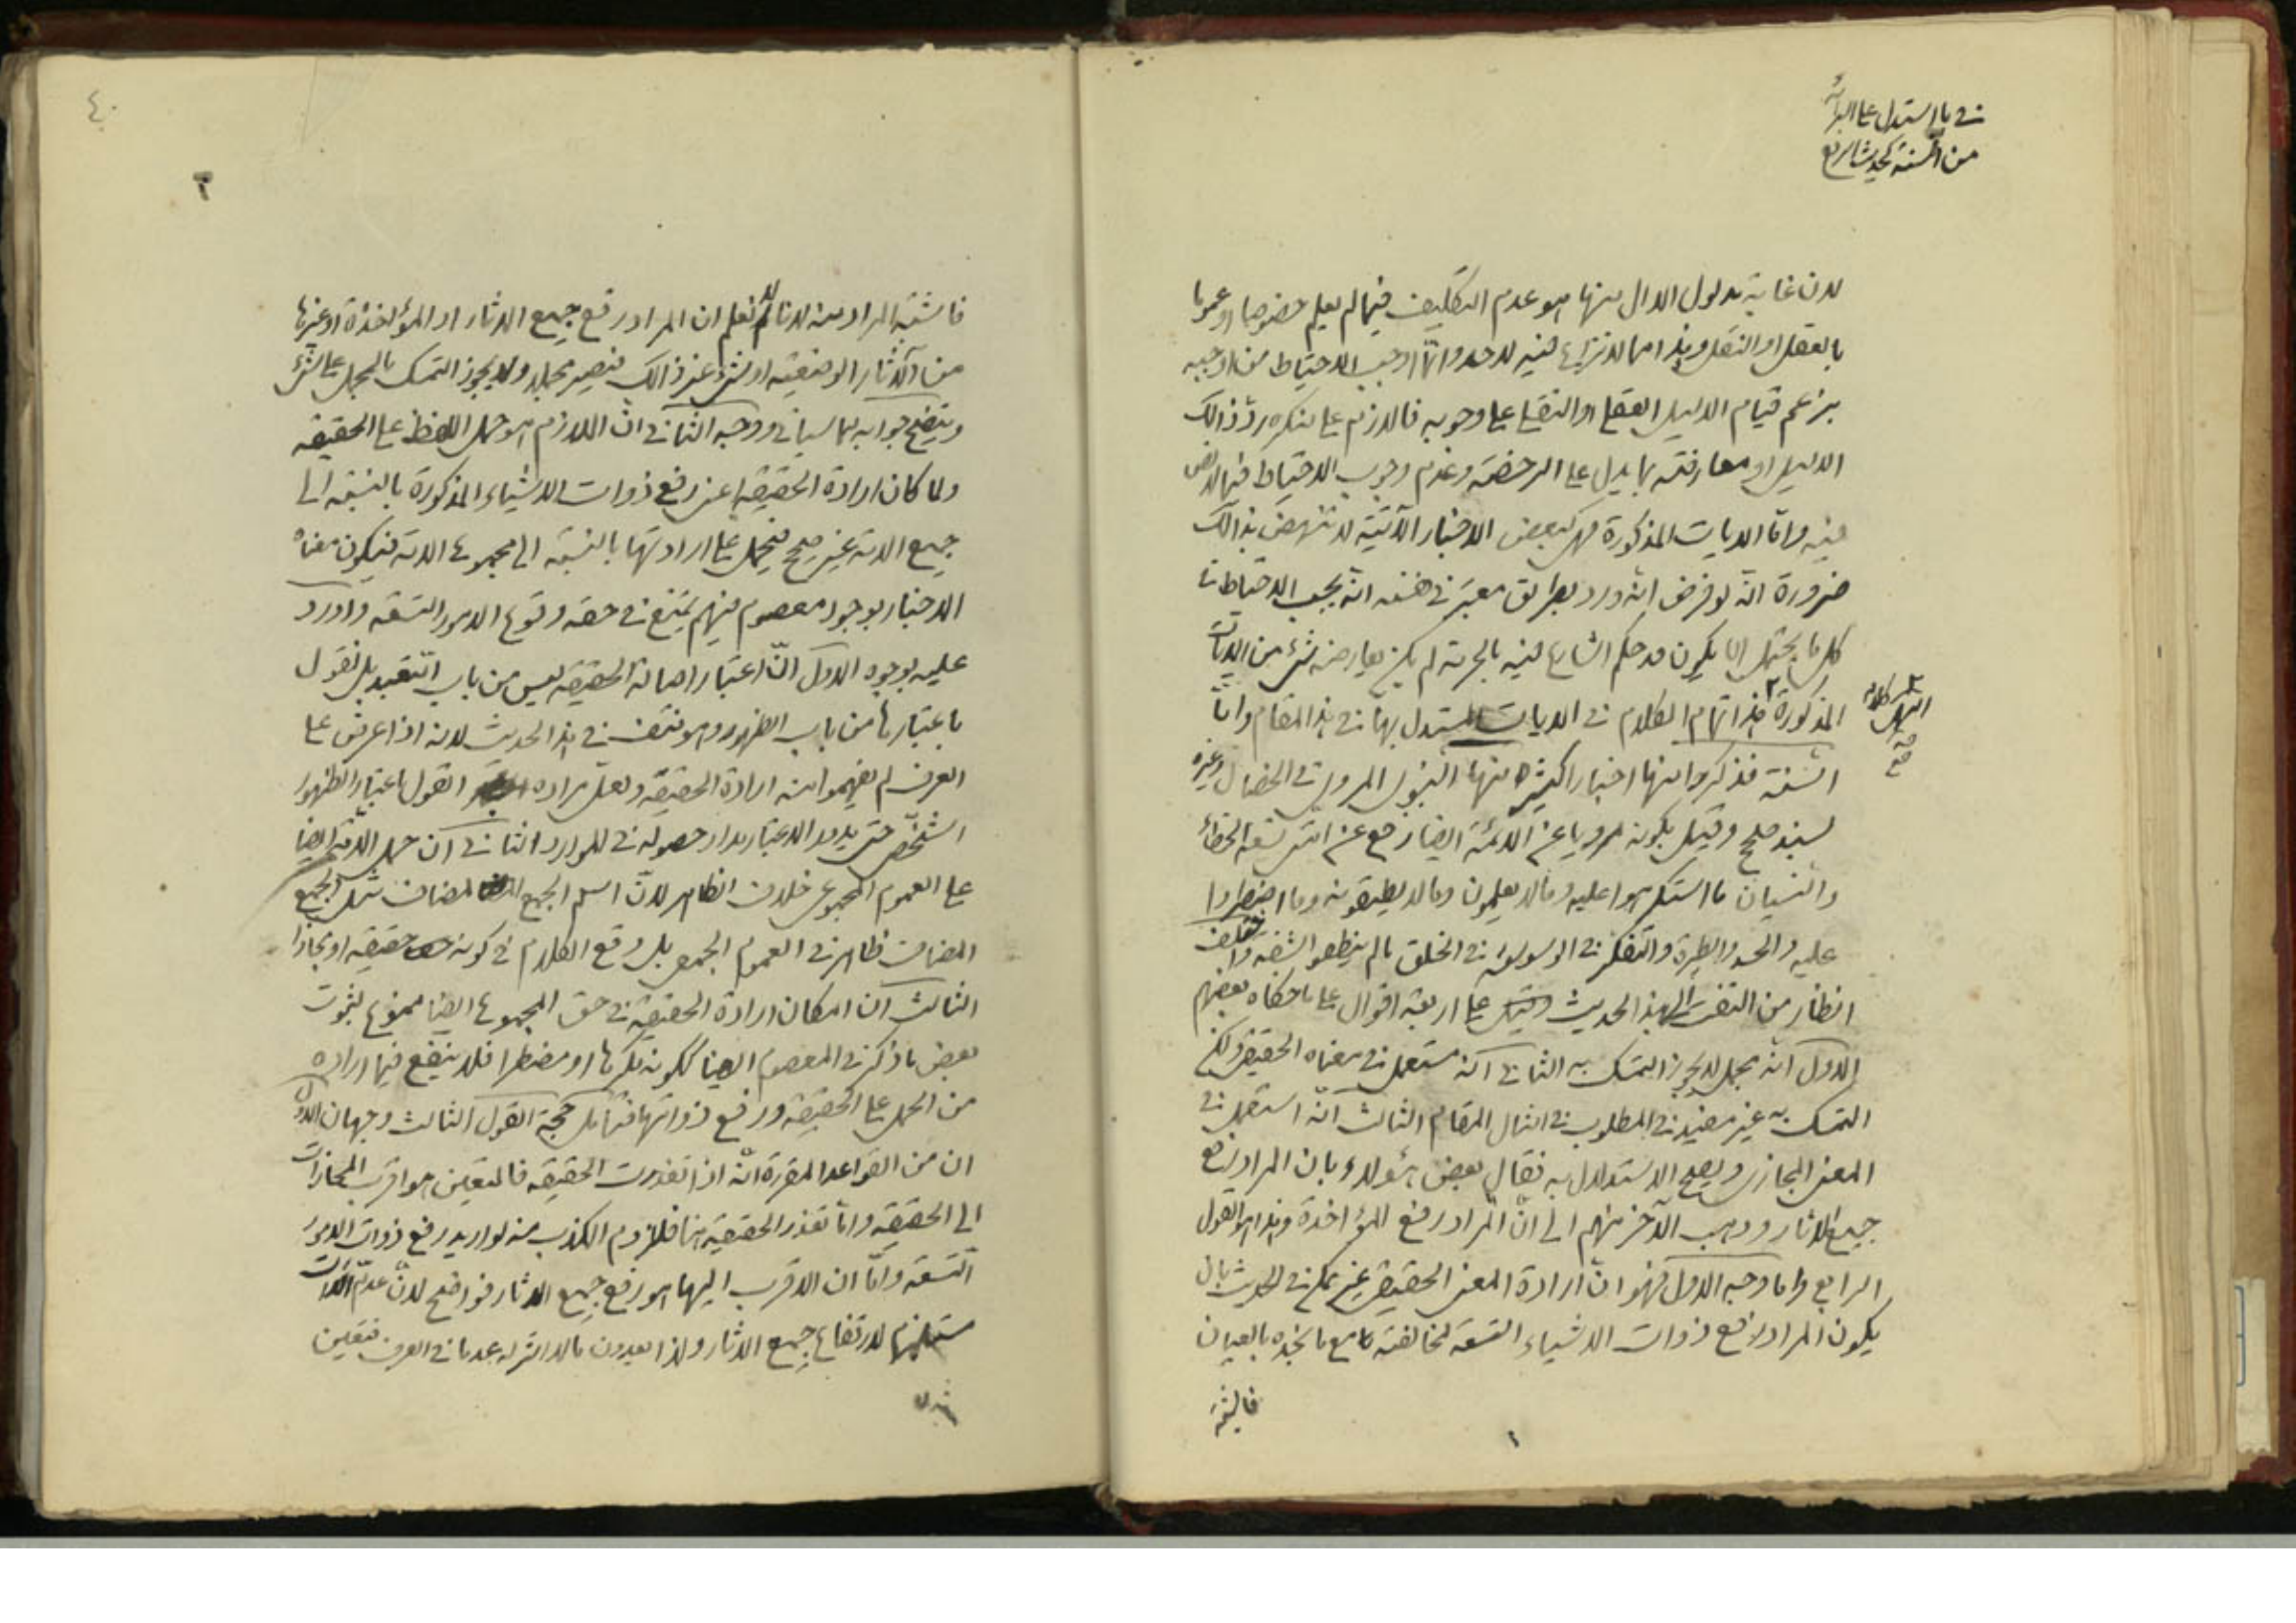 في ما استدل على البرائة
من السنة كحديث الرفع
لان غاية مدلول الدال منها هو عدم التكليف فيما لم يعلم خصوصا او عموما
بالعقل او النقل وهذا مما لا نزاع فيه لاحد وانّما اوجب الاحتياط من اوجبه
بزعم قيام الدليل العقلي او النقلي على وجوبه فاللازم على منكره ردّ ذالك
الدليل او معارضته بما يدل على الرخصة وعدم وجوب الاحتياط فيما لا نص
فيه وامّا الايات المذكورة فهي كبعض الاخبار الآتية لا تنهض بذالك
ضرورة انّه لو فرض انّه ورد بطريق معتبر في نفسه انّه يجب الاحتياط في
كل ما يحتمل ان يكون قد حكم الشارع فيه بالحرمة لم يكن يعارضه شئ من الايات
المذكورة هذا تمام الكلام في الايات المستدل بها في هذا المقام وامّا
انتهى كلامه
السّنة فذكروا منها اخبارا كثيرة منها النبوي المروي في الخصال وغيره
بسند صحيح وقيل بكونه مرويا عن الائمّة ايضا رفع عن امّتي تسعة الخطاء
والنسيان ما استكرهوا عليه وما لا يعلمون وما لا يطيقونه وما اضطروا
عليه والحسد والطيرة والتفكر في الوسوسة في الخلق ما لم ينطقوا بشفة واختلف
انظار من التفت الى هذا الحديث على اربعة اقوال على ما حكاه بعضهم
الاول انّه مجمل لا يجوز التمسك به الثاني انّه مستعمل في معناه الحقيقي ولكن
التمسك به غير مفيد في المطلوب في امثال المقام الثالث انّه استعمل في
المعنى المجازي ويصح الاستدلال به فقال بعض هؤلاء بان المراد رفع
جميع الاثار وذهب الآخر منهم الى انّ المراد رفع المؤاخذة وهذا هو القول
الرابع واما وجه الاول فهو انّ ارادة المعنى الحقيقي غير ممكن في الحديث بان
يكون المراد رفع ذوات الاشياء التسعة لمخالفته مع ما نجده بالعيان
فاشتبه
٤٠
٢
فاشتبه المراد منه لانا لم نعلم ان المراد رفع جميع الاثار او المؤاخذة او غيرها
من الآثار الوضعية او شئ غير ذالك فيصير مجملا ولا يجوز التمسك بالمجمل على شئ
ويتضح جوابه بما سياتي ووجه الثاني انّ اللازم هو حمل اللفظ على الحقيقة
ولما كان ارادة الحقيقة اعني رفع ذوات الاشياء المذكورة بالنسبة الى
جميع الامة غير صحيح فيحمل على ارادتها بالنسبة الى مجموع الامة فيكون معناه
الاخبار بوجود معصوم فيهم يمتنع في حقه وقوع الامور التسعة واورد
عليه بوجوه الاول انّ اعتبار اصالة الحقيقة ليس من باب التعبد بل نقول
باعتبارها من باب الظهور وهو منتف في هذا الحديث لانه اذا عرض على
العرف لم يفهموا منه ارادة الحقيقة ولعل مراده القول باعتبار الظهور
الشخصي حتى يدور الاعتبار مدار حصوله في الموارد الثاني انّ حمل الامّة ايضا
على العموم المجموعي خلاف الظاهر لانّ اسم الجمع المضاف مثل الجمع
المضاف ظاهر في العموم الجمعي بل وقع الكلام في كونه حقيقة او مجازا
الثالث انّ امكان ارادة الحقيقة في حق المجموع ايضا ممنوع لثبوت
بعض ما ذكر في المعصوم ايضا ككونه مكرها او مضطرا فلا ينفع فيما اراده
من الحمل على الحقيقة ورفع ذواتها فتامل حجة القول الثالث وجهان الاول
ان من القواعد المقررة انّه اذا تعذرت الحقيقة فالمتعين هو اقرب المجازات
الى الحقيقة وامّا تعذر الحقيقة هنا فللزوم الكذب منه لو اريد رفع ذوات الامور
التسعة وامّا ان الاقرب اليها هو رفع جميع الاثار فواضح لانّ عدم الذات
مستلزم لارتفاع جميع الاثار ولذا يعدون ما لا اثر له عدما في العرف فتعين